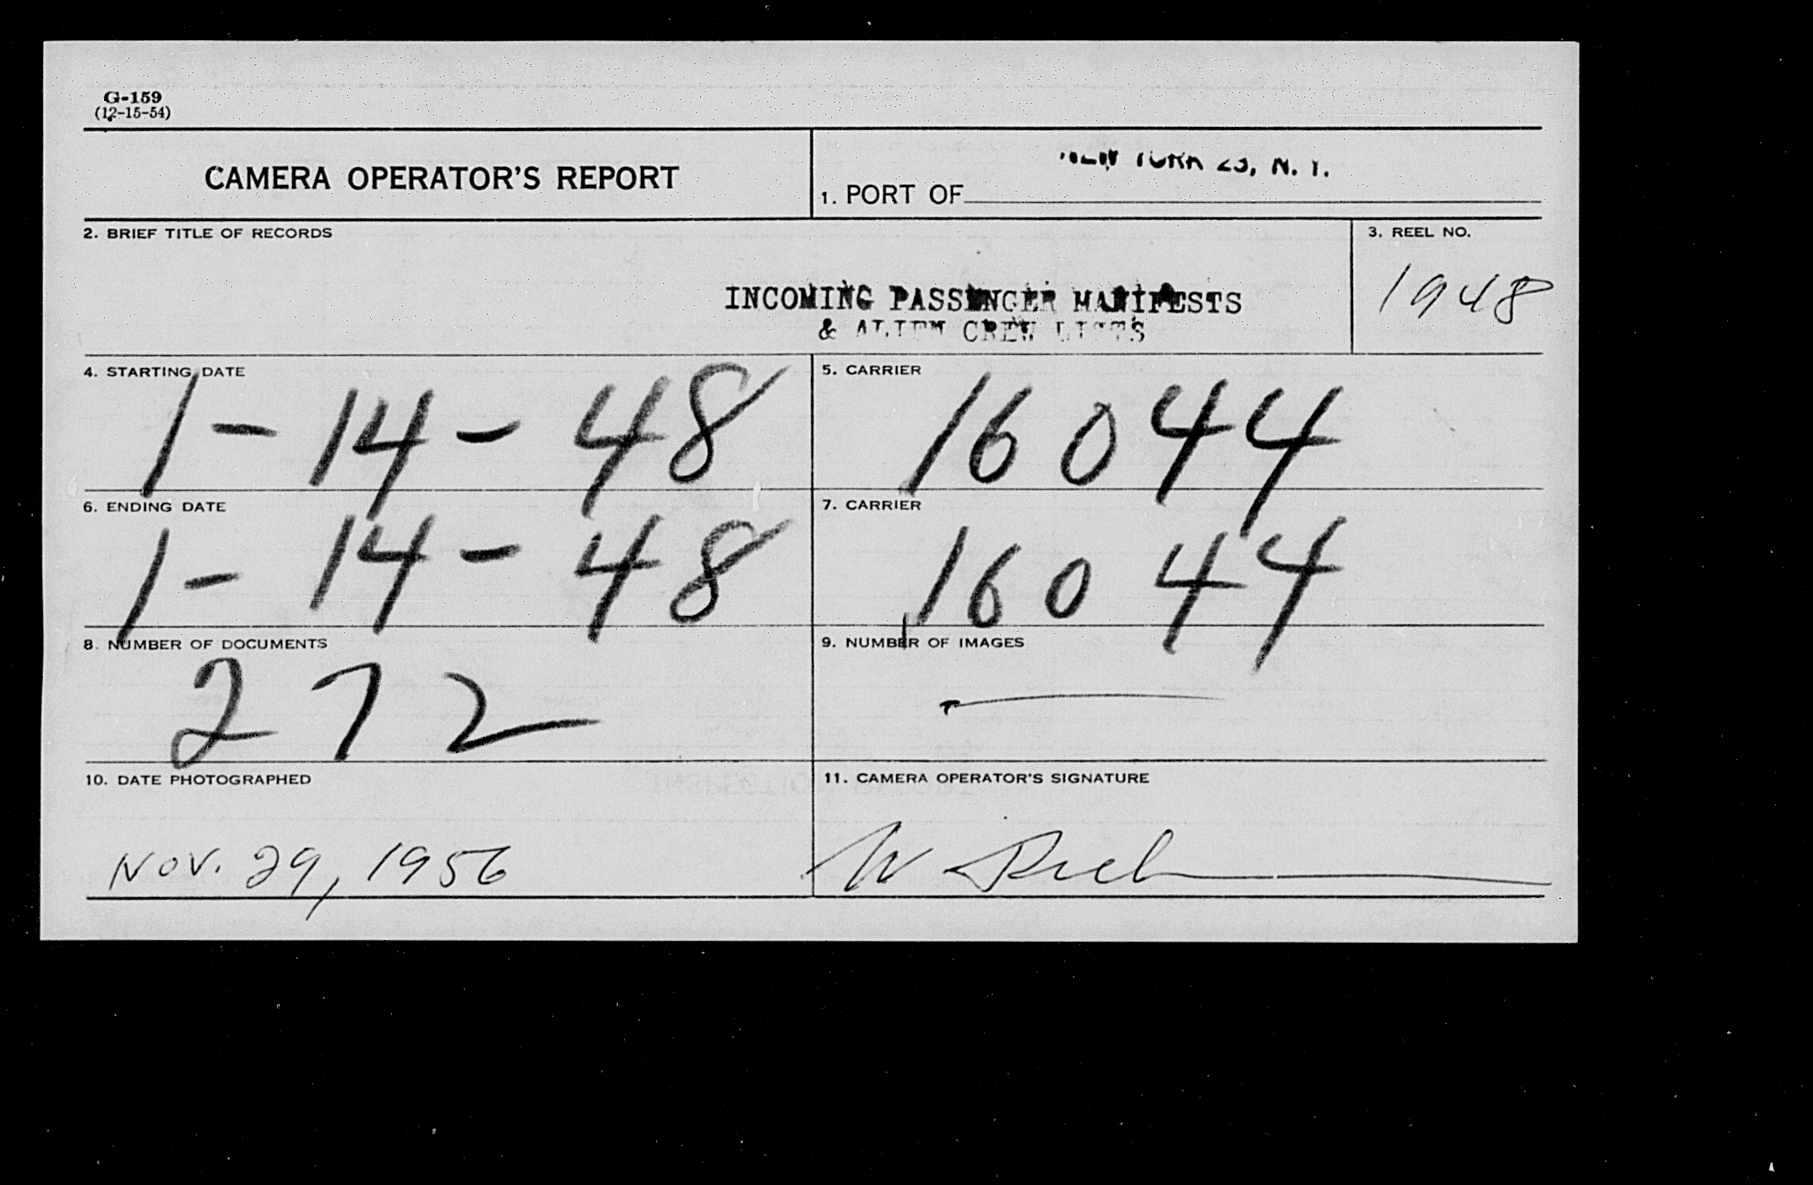 G-159
(12-15-54)
CAMERA OPERATOR'S REPORT
1. PORT OF
NEW YORK 25, N. Y.
2. BRIEF TITLE OF RECORDS
INCOMING PASSENGER MANIFESTS
& ALIEN CREW LISTS
3. REEL NO.
1948
4. STARTING DATE
1-14-48
5. CARRIER
16044
6. ENDING DATE
1-14-48
7. CARRIER
16044
8. NUMBER OF DOCUMENTS
272
9. NUMBER OF IMAGES
10. DATE PHOTOGRAPHED
Nov. 29, 1956
11. CAMERA OPERATOR'S SIGNATURE
W